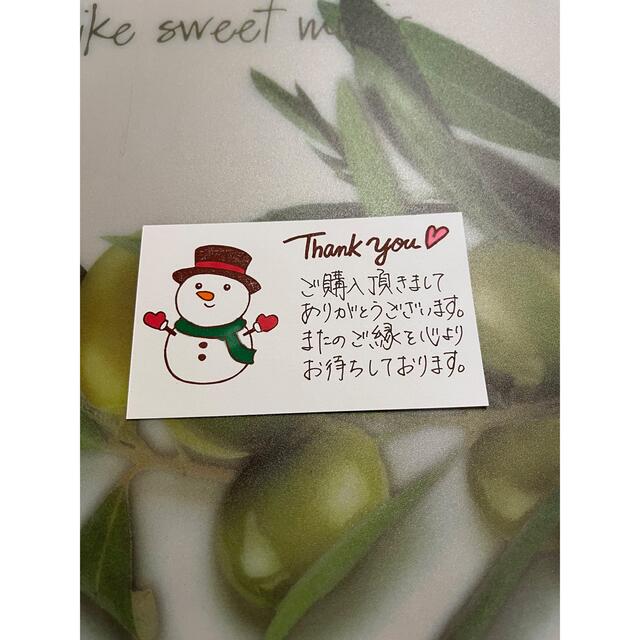 ike sweet music
Thank you
ご購入頂きまして
ありがとうございます。
またのご縁を心より
お待ちしております。